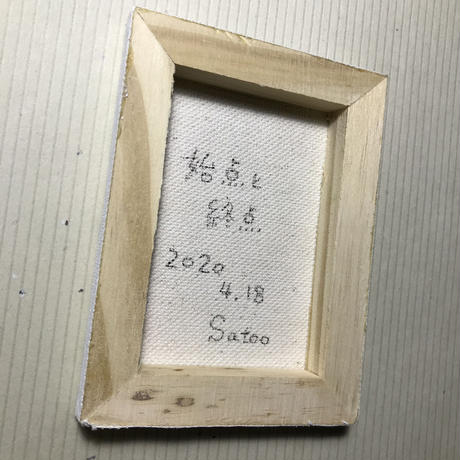 始点と
終点
2020
4.18
Satoo